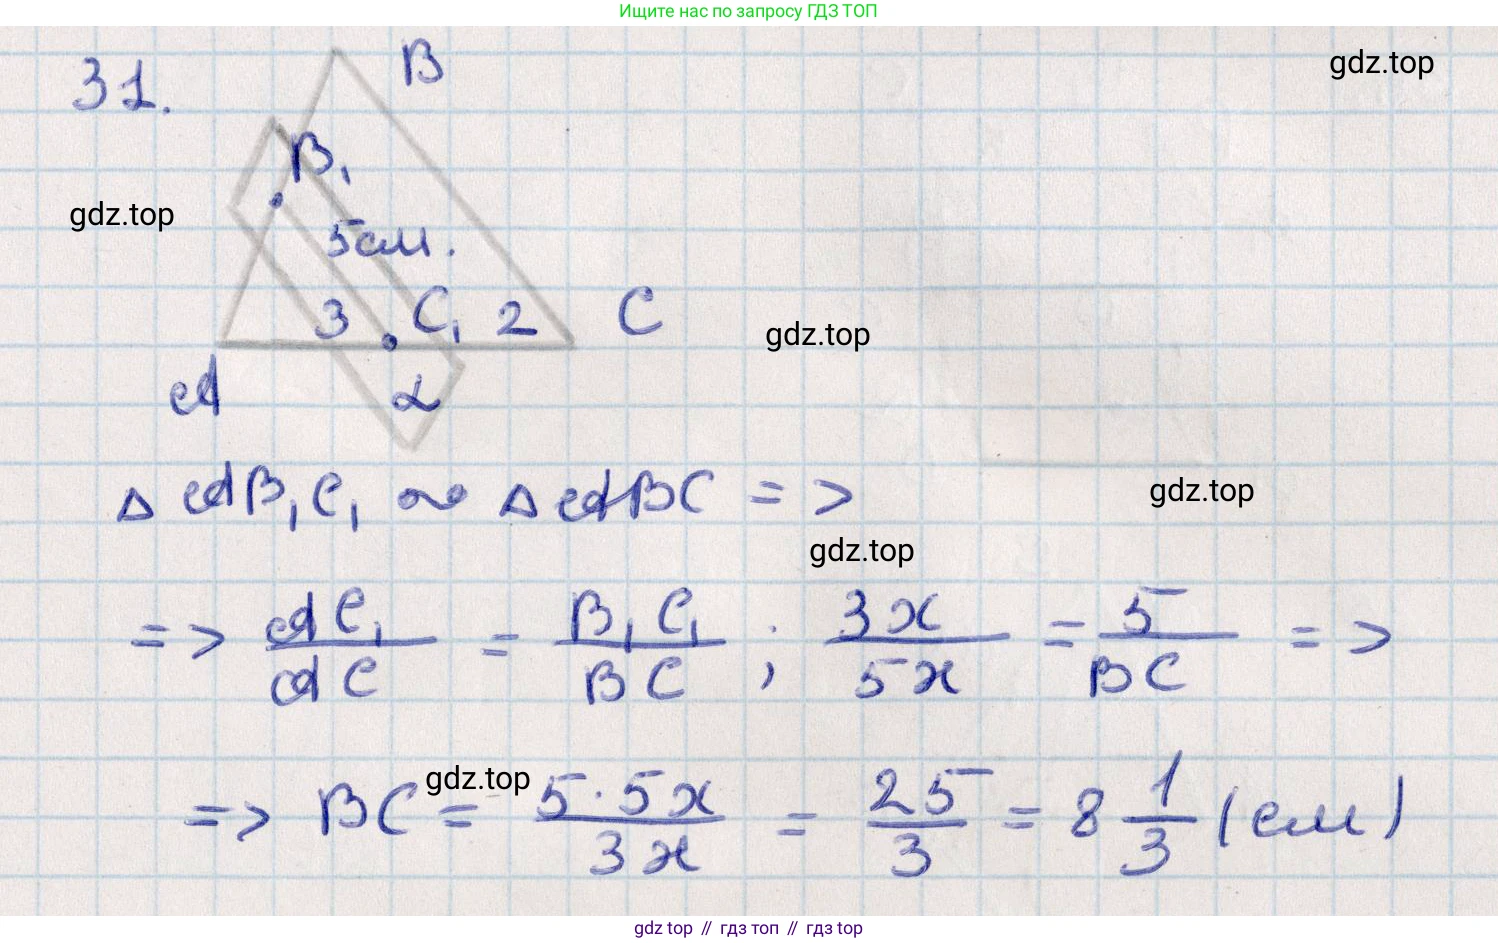 Ищите нас по запросу ГДЗ ТОП
31.
B
gdz.top
B₁
gdz.top
5см.
3 C₁ 2 C
gdz.top
A
α
Δ AB₁C₁ ∾ Δ ABC =>
gdz.top
gdz.top
=> AC₁/AC = B₁C₁/BC ; 3x/5x = 5/BC =>
gdz.top
=> BC = 5·5x/3x = 25/3 = 8 1/3 (см)
gdz top // гдз топ // гдз top